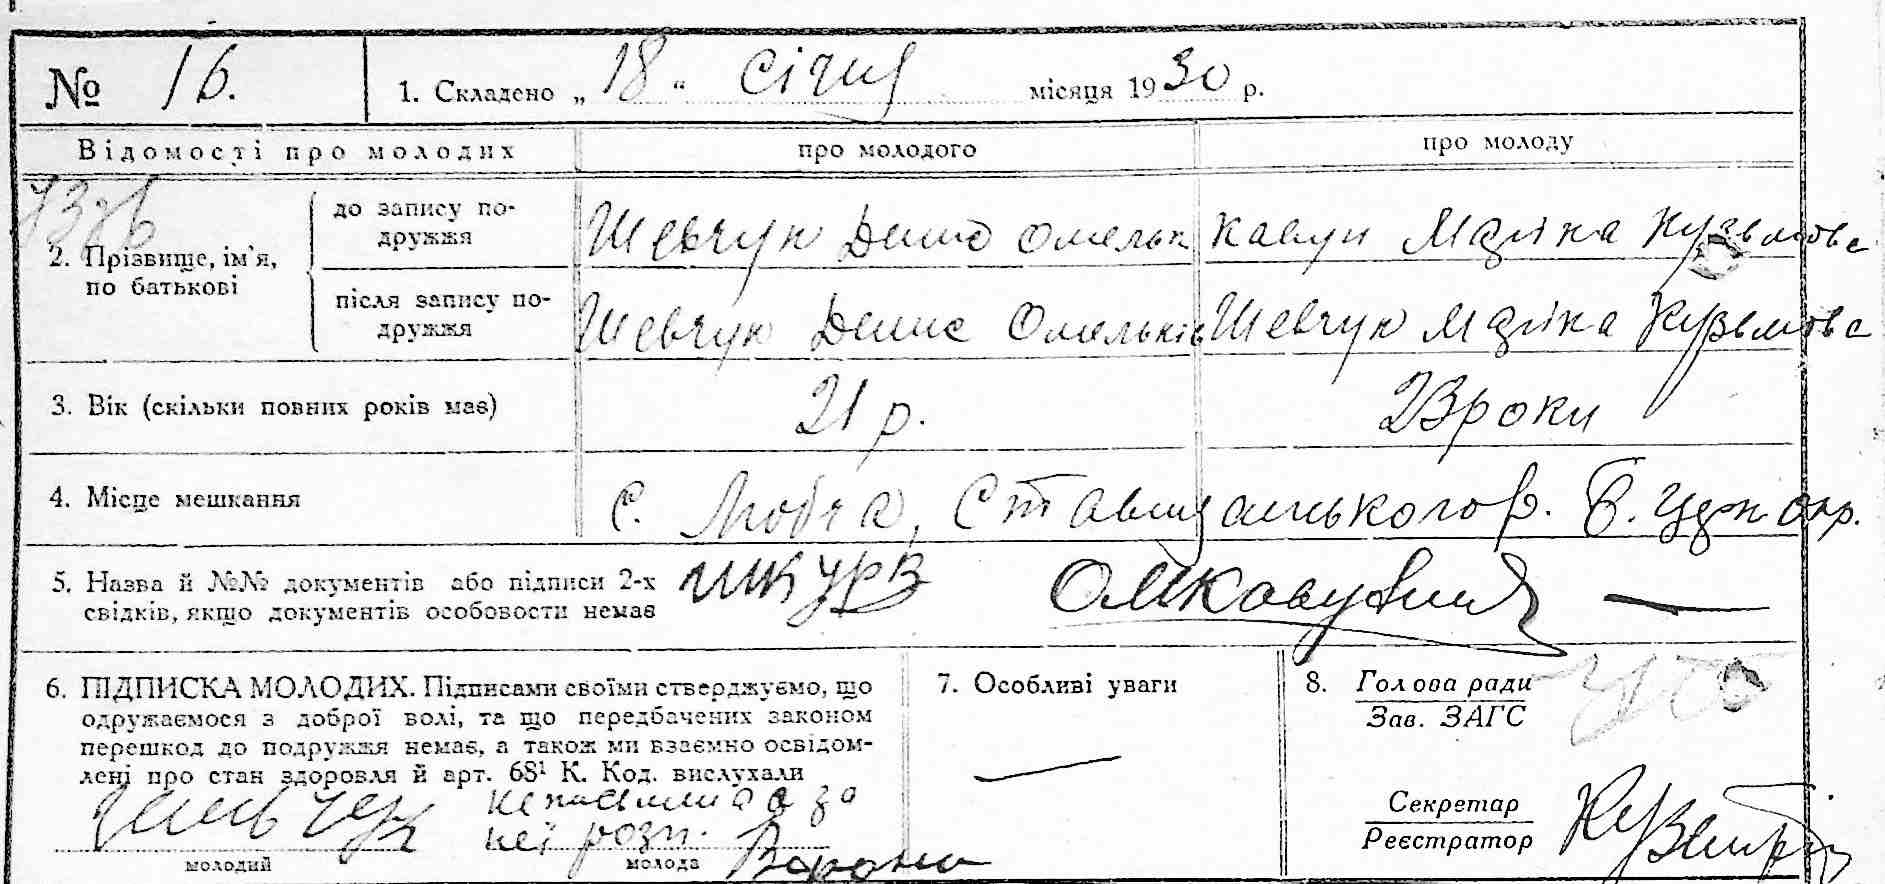 № 16. 1. Складено „ 18 “ Січня місяця 1930 р.
Відомості про молодих про молодого про молоду
2. Прізвище, ім'я, по батькові
до запису подружжя Шевчук Денис Омельк Кавун Маріка Кузьмова
після запису подружжя Шевчук Денис Омельків Шевчук Маріка Кузьмова
3. Вік (скільки повних років має) 21 р. 23 роки
4. Місце мешкання С. Любча, Ставищанського р. Б. Церк окр.
5. Назва й №№ документів або підписи 2-х
свідків, якщо документів особовости немає
6. ПІДПИСКА МОЛОДИХ. Підписами своїми стверджуємо, що
одружаємося з доброї волі, та що передбачених законом
перешкод до подружжя немає, а також ми взаємно освідом-
лені про стан здоровля й арт. 68¹ К. Код. вислухали
неписьменна а за
неї розп.
молодий молода
7. Особливі уваги
8. Голова ради
Зав. ЗАГС
Секретар
Реєстратор